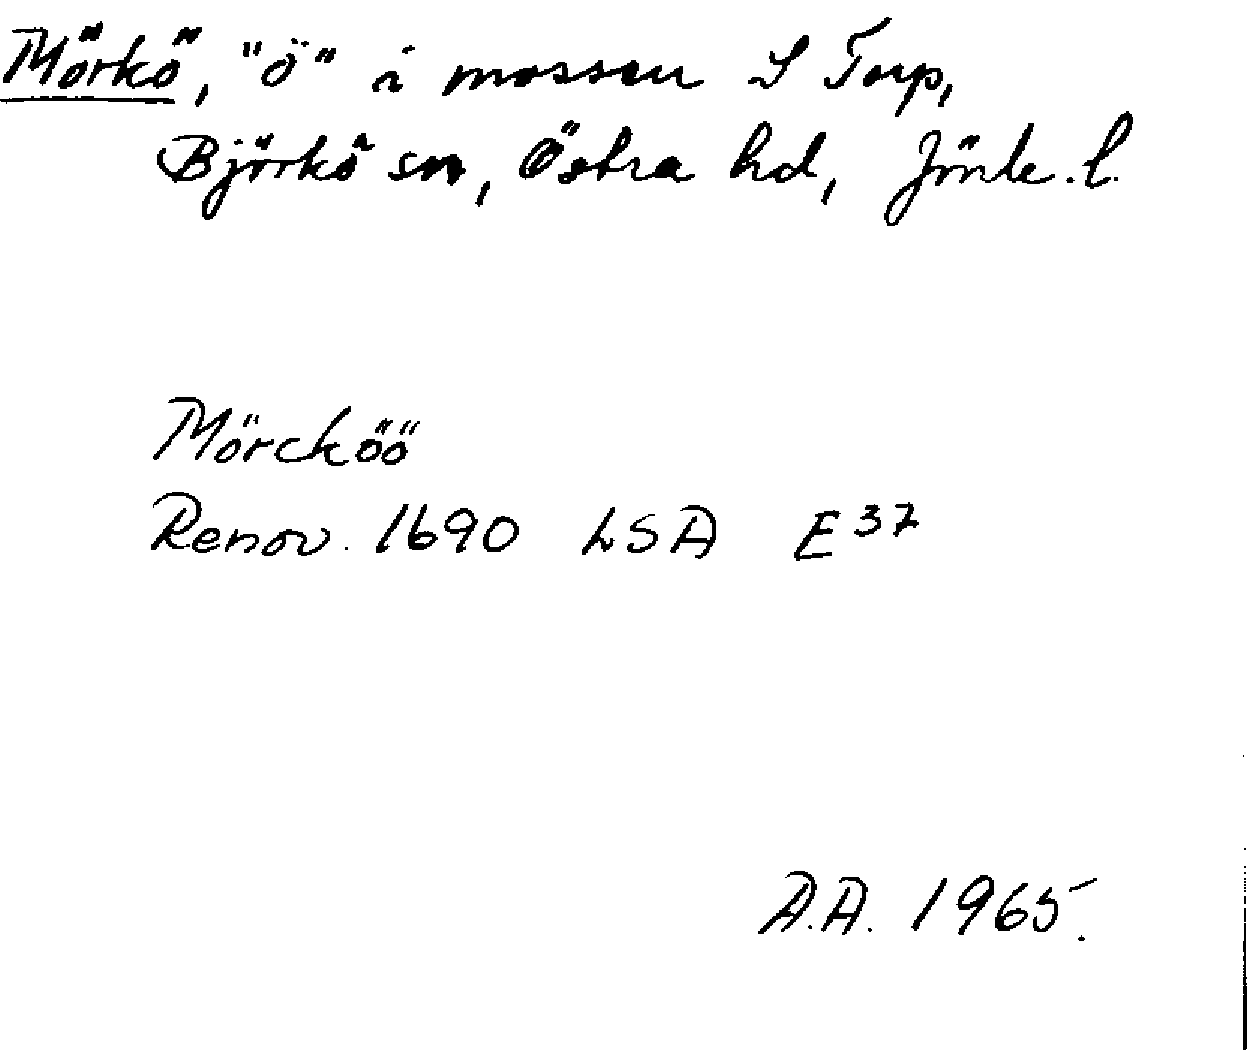 Mörkö, "ö" i mossen S Torp,
Björkö sn, Östra hd, Jönk. l.
Mörcköö
Renov. 1690 LSA E 37
A.A. 1965.